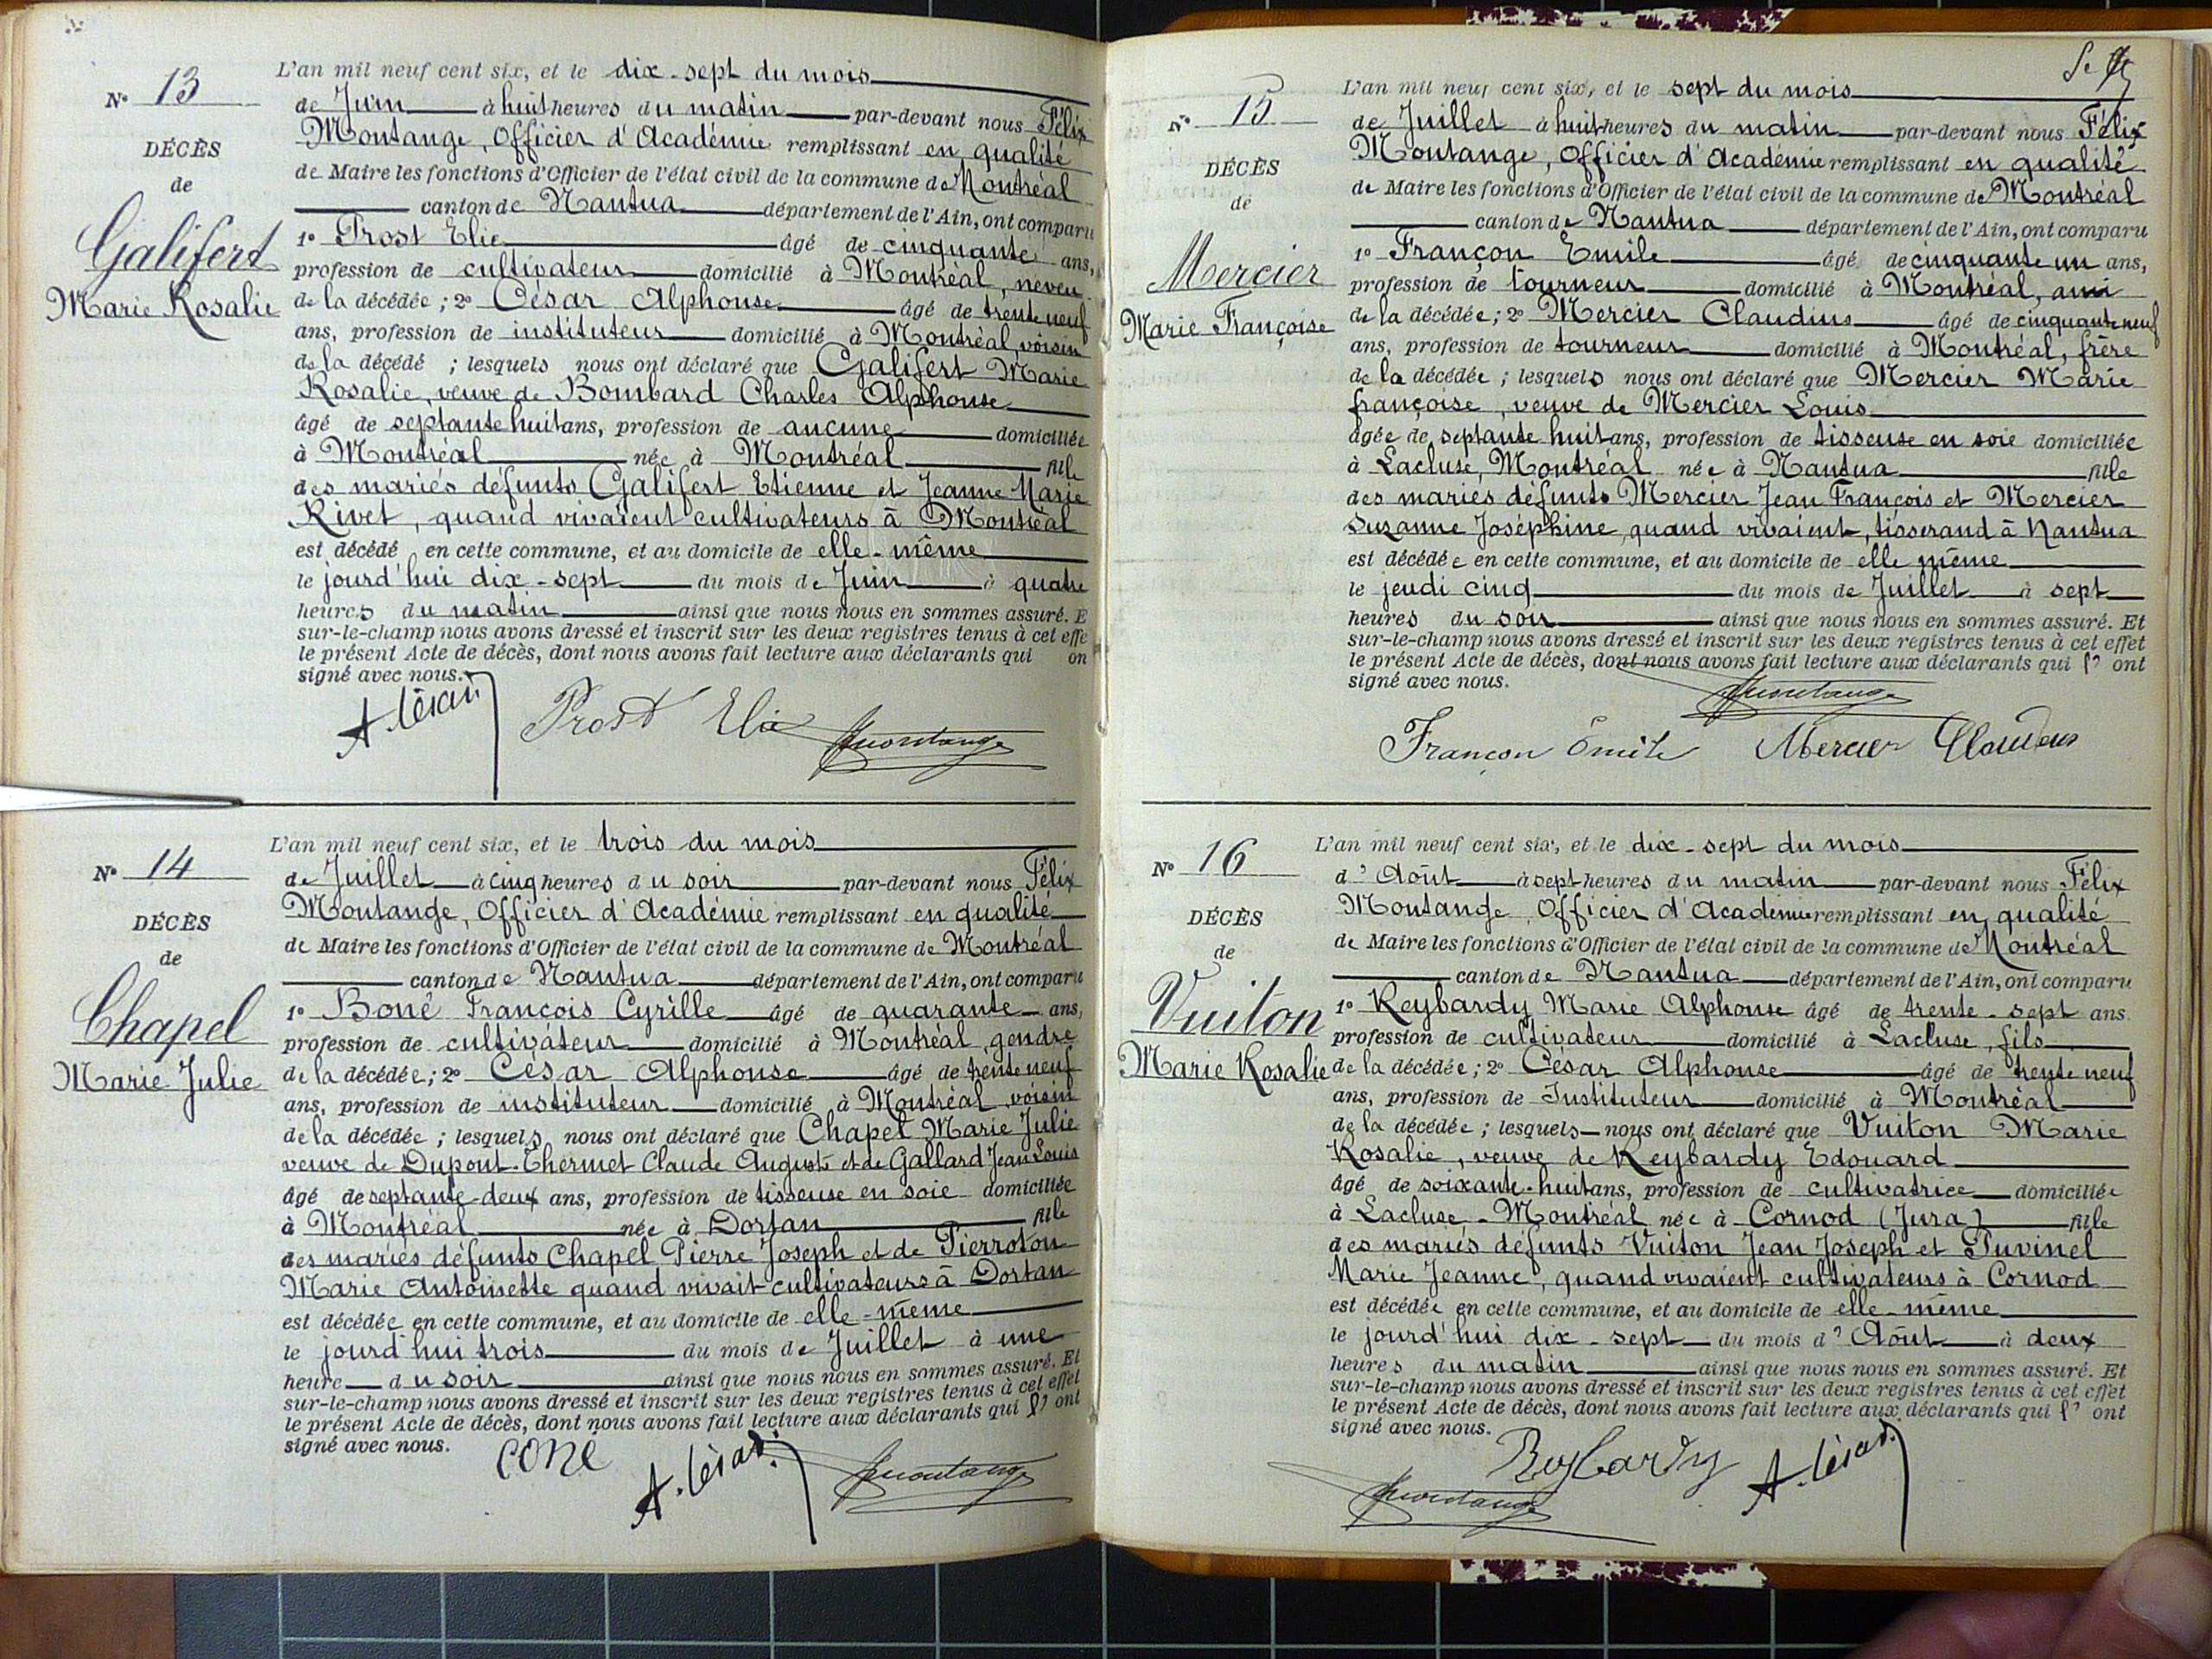 L'an mil neuf cent six, et le dix-sept du mois
N° 13
de Juin à huit heures du matin par-devant nous Félix
Montange, Officier d'Académie remplissant en qualité
DÉCÈS
de Maire les fonctions d'Officier de l'état civil de la commune de Montréal
de
canton de Nantua département de l'Ain, ont comparu
Galifert
1° Prost Elie âgé de cinquante ans,
profession de cultivateur domicilié à Montréal, neveu
Marie Rosalie
de la décédée; 2° César Alphonse âgé de trente neuf
ans, profession de instituteur domicilié à Montréal, voisin
de la décédé ; lesquels nous ont déclaré que Galifert Marie
Rosalie, veuve de Bombard Charles Alphonse
âgé de septante huit ans, profession de aucune domiciliée
à Montréal née à Montréal fille
des mariés défunts Galifert Etienne et Jeanne Marie
Rivet, quand vivaient cultivateurs à Montréal
est décédé en cette commune, et au domicile de elle-même
le jourd'hui dix-sept du mois de Juin à quatre
heures du matin ainsi que nous nous en sommes assuré. E
sur-le-champ nous avons dressé et inscrit sur les deux registres tenus à cet effe
le présent Acte de décès, dont nous avons fait lecture aux déclarants qui on
signé avec nous.
A. César Prost Elie Montange
L'an mil neuf cent six, et le trois du mois
N° 14
de Juillet à cinq heures du soir par-devant nous Félix
Montange, Officier d'Académie remplissant en qualité
DÉCÈS
de Maire les fonctions d'Officier de l'état civil de la commune de Montréal
de
canton de Nantua département de l'Ain, ont comparu
Chapel
1° Boné François Cyrille âgé de quarante ans,
profession de cultivateur domicilié à Montréal, gendre
Marie Julie
de la décédée; 2° César Alphonse âgé de trente neuf
ans, profession de instituteur domicilié à Montréal voisin
de la décédée ; lesquels nous ont déclaré que Chapel Marie Julie
veuve de Dupont-Thermet Claude Auguste et de Gallard Jean Louis
âgé de septante-deux ans, profession de tisseuse en soie domiciliée
à Montréal née à Dortan fille
des mariés défunts Chapel Pierre Joseph et de Pierroton
Marie Antoinette quand vivait cultivateurs à Dortan
est décédée en cette commune, et au domicile de elle-même
le jourd'hui trois du mois de Juillet à une
heure du soir ainsi que nous nous en sommes assuré. Et
sur-le-champ nous avons dressé et inscrit sur les deux registres tenus à cet effet
le présent Acte de décès, dont nous avons fait lecture aux déclarants qui l' ont
signé avec nous.
A. César Montange
L'an mil neuf cent six, et le sept du mois
N° 15
de Juillet à huit heures du matin par-devant nous Félix
Montange, Officier d'Académie remplissant en qualité
DÉCÈS
de Maire les fonctions d'Officier de l'état civil de la commune de Montréal
de
canton de Nantua département de l'Ain, ont comparu
Mercier
1° Françon Emile âgé de cinquante un ans,
profession de tourneur domicilié à Montréal, ami
Marie Françoise
de la décédée; 2° Mercier Claudius âgé de cinquante neuf
ans, profession de tourneur domicilié à Montréal, frère
de la décédée ; lesquels nous ont déclaré que Mercier Marie
françoise, veuve de Mercier Louis
âgée de septante huit ans, profession de tisseuse en soie domiciliée
à Lacluse, Montréal née à Nantua fille
des mariés défunts Mercier Jean François et Mercier
Suzanne Joséphine, quand vivaient, tisserand à Nantua
est décédée en cette commune, et au domicile de elle même
le jeudi cinq du mois de Juillet à sept
heures du soir ainsi que nous nous en sommes assuré. Et
sur-le-champ nous avons dressé et inscrit sur les deux registres tenus à cet effet
le présent Acte de décès, dont nous avons fait lecture aux déclarants qui l' ont
signé avec nous.
Montange
Françon Emile Mercier Claudius
L'an mil neuf cent six, et le dix-sept du mois
N° 16
d' Août à sept heures du matin par-devant nous Félix
Montange, Officier d'Académie remplissant en qualité
DÉCÈS
de Maire les fonctions d'Officier de l'état civil de la commune de Montréal
de
canton de Nantua département de l'Ain, ont comparu
Vuiton
1° Reybardy Marie Alphonse âgé de trente-sept ans
profession de cultivateur domicilié à Lacluse, fils
Marie Rosalie
de la décédée; 2° César Alphonse âgé de trente neuf
ans, profession de Instituteur domicilié à Montréal
de la décédée ; lesquels nous ont déclaré que Vuiton Marie
Rosalie, veuve de Reybardy Edouard
âgé de soixante-huit ans, profession de cultivatrice domiciliée
à Lacluse-Montréal née à Cornod (Jura) fille
des mariés défunts Vuiton Jean Joseph et Puvinel
Marie Jeanne, quand vivaient cultivateurs à Cornod
est décédée en cette commune, et au domicile de elle-même
le jourd'hui dix-sept du mois d' Août à deux
heures du matin ainsi que nous nous en sommes assuré. Et
sur-le-champ nous avons dressé et inscrit sur les deux registres tenus à cet effet
le présent Acte de décès, dont nous avons fait lecture aux déclarants qui l' ont
signé avec nous.
Reybardy A. César
Montange